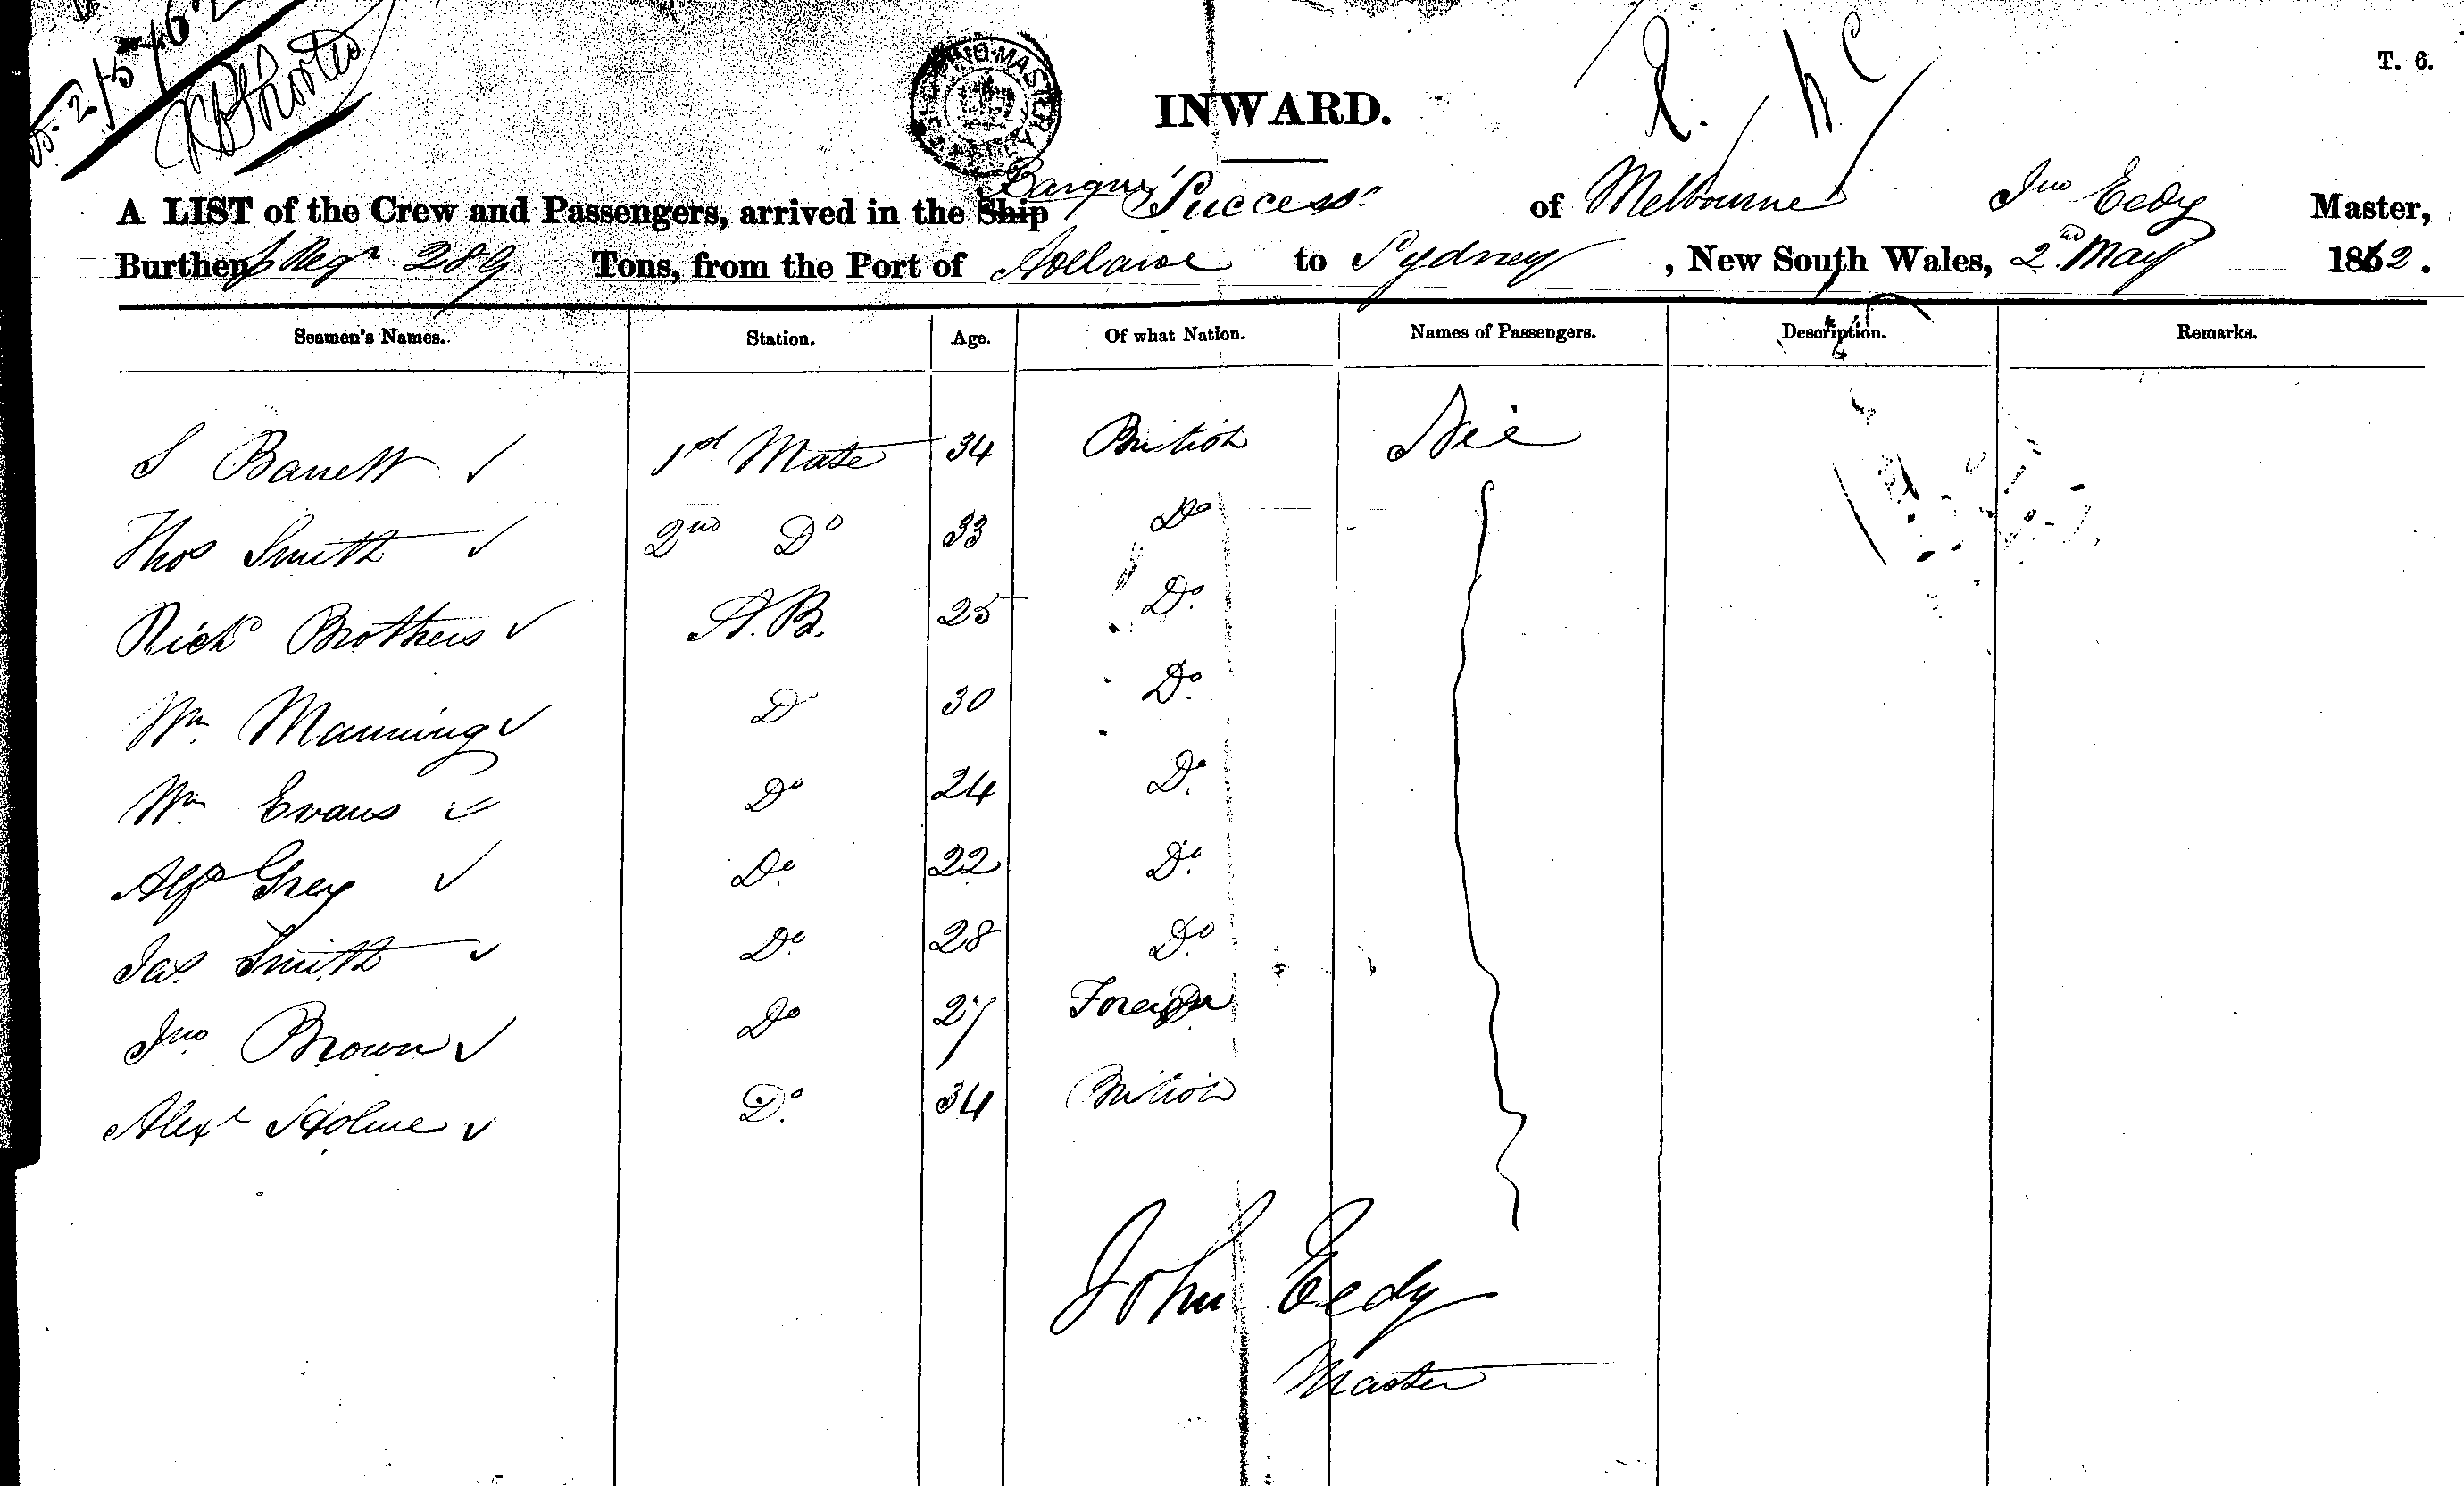 2/5/62
T. 6.
INWARD.
A LIST of the Crew and Passengers, arrived in the Ship Barque Success of Melbourne Jno Eedy Master,
Burthen p Regr 289 Tons, from the Port of Adelaide to Sydney, New South Wales, 2nd May 1862.
Seamen's Names. Station. Age. Of what Nation. Names of Passengers. Description. Remarks.
S Barrett ✓ 1st Mate 34 British Nil
Thos Smith ✓ 2nd Do 33 Do
Richd Brothers ✓ A.B. 25 Do
Wm Manning ✓ Do 30 Do
Wm Evans ✓ Do 24 Do
Alfd Grey ✓ Do 22 Do
Jas Smith ✓ Do 28 Do
Jno Brown ✓ Do 27 Foreign
Alexr Holme ✓ Do 34 British
John Eedy
Master